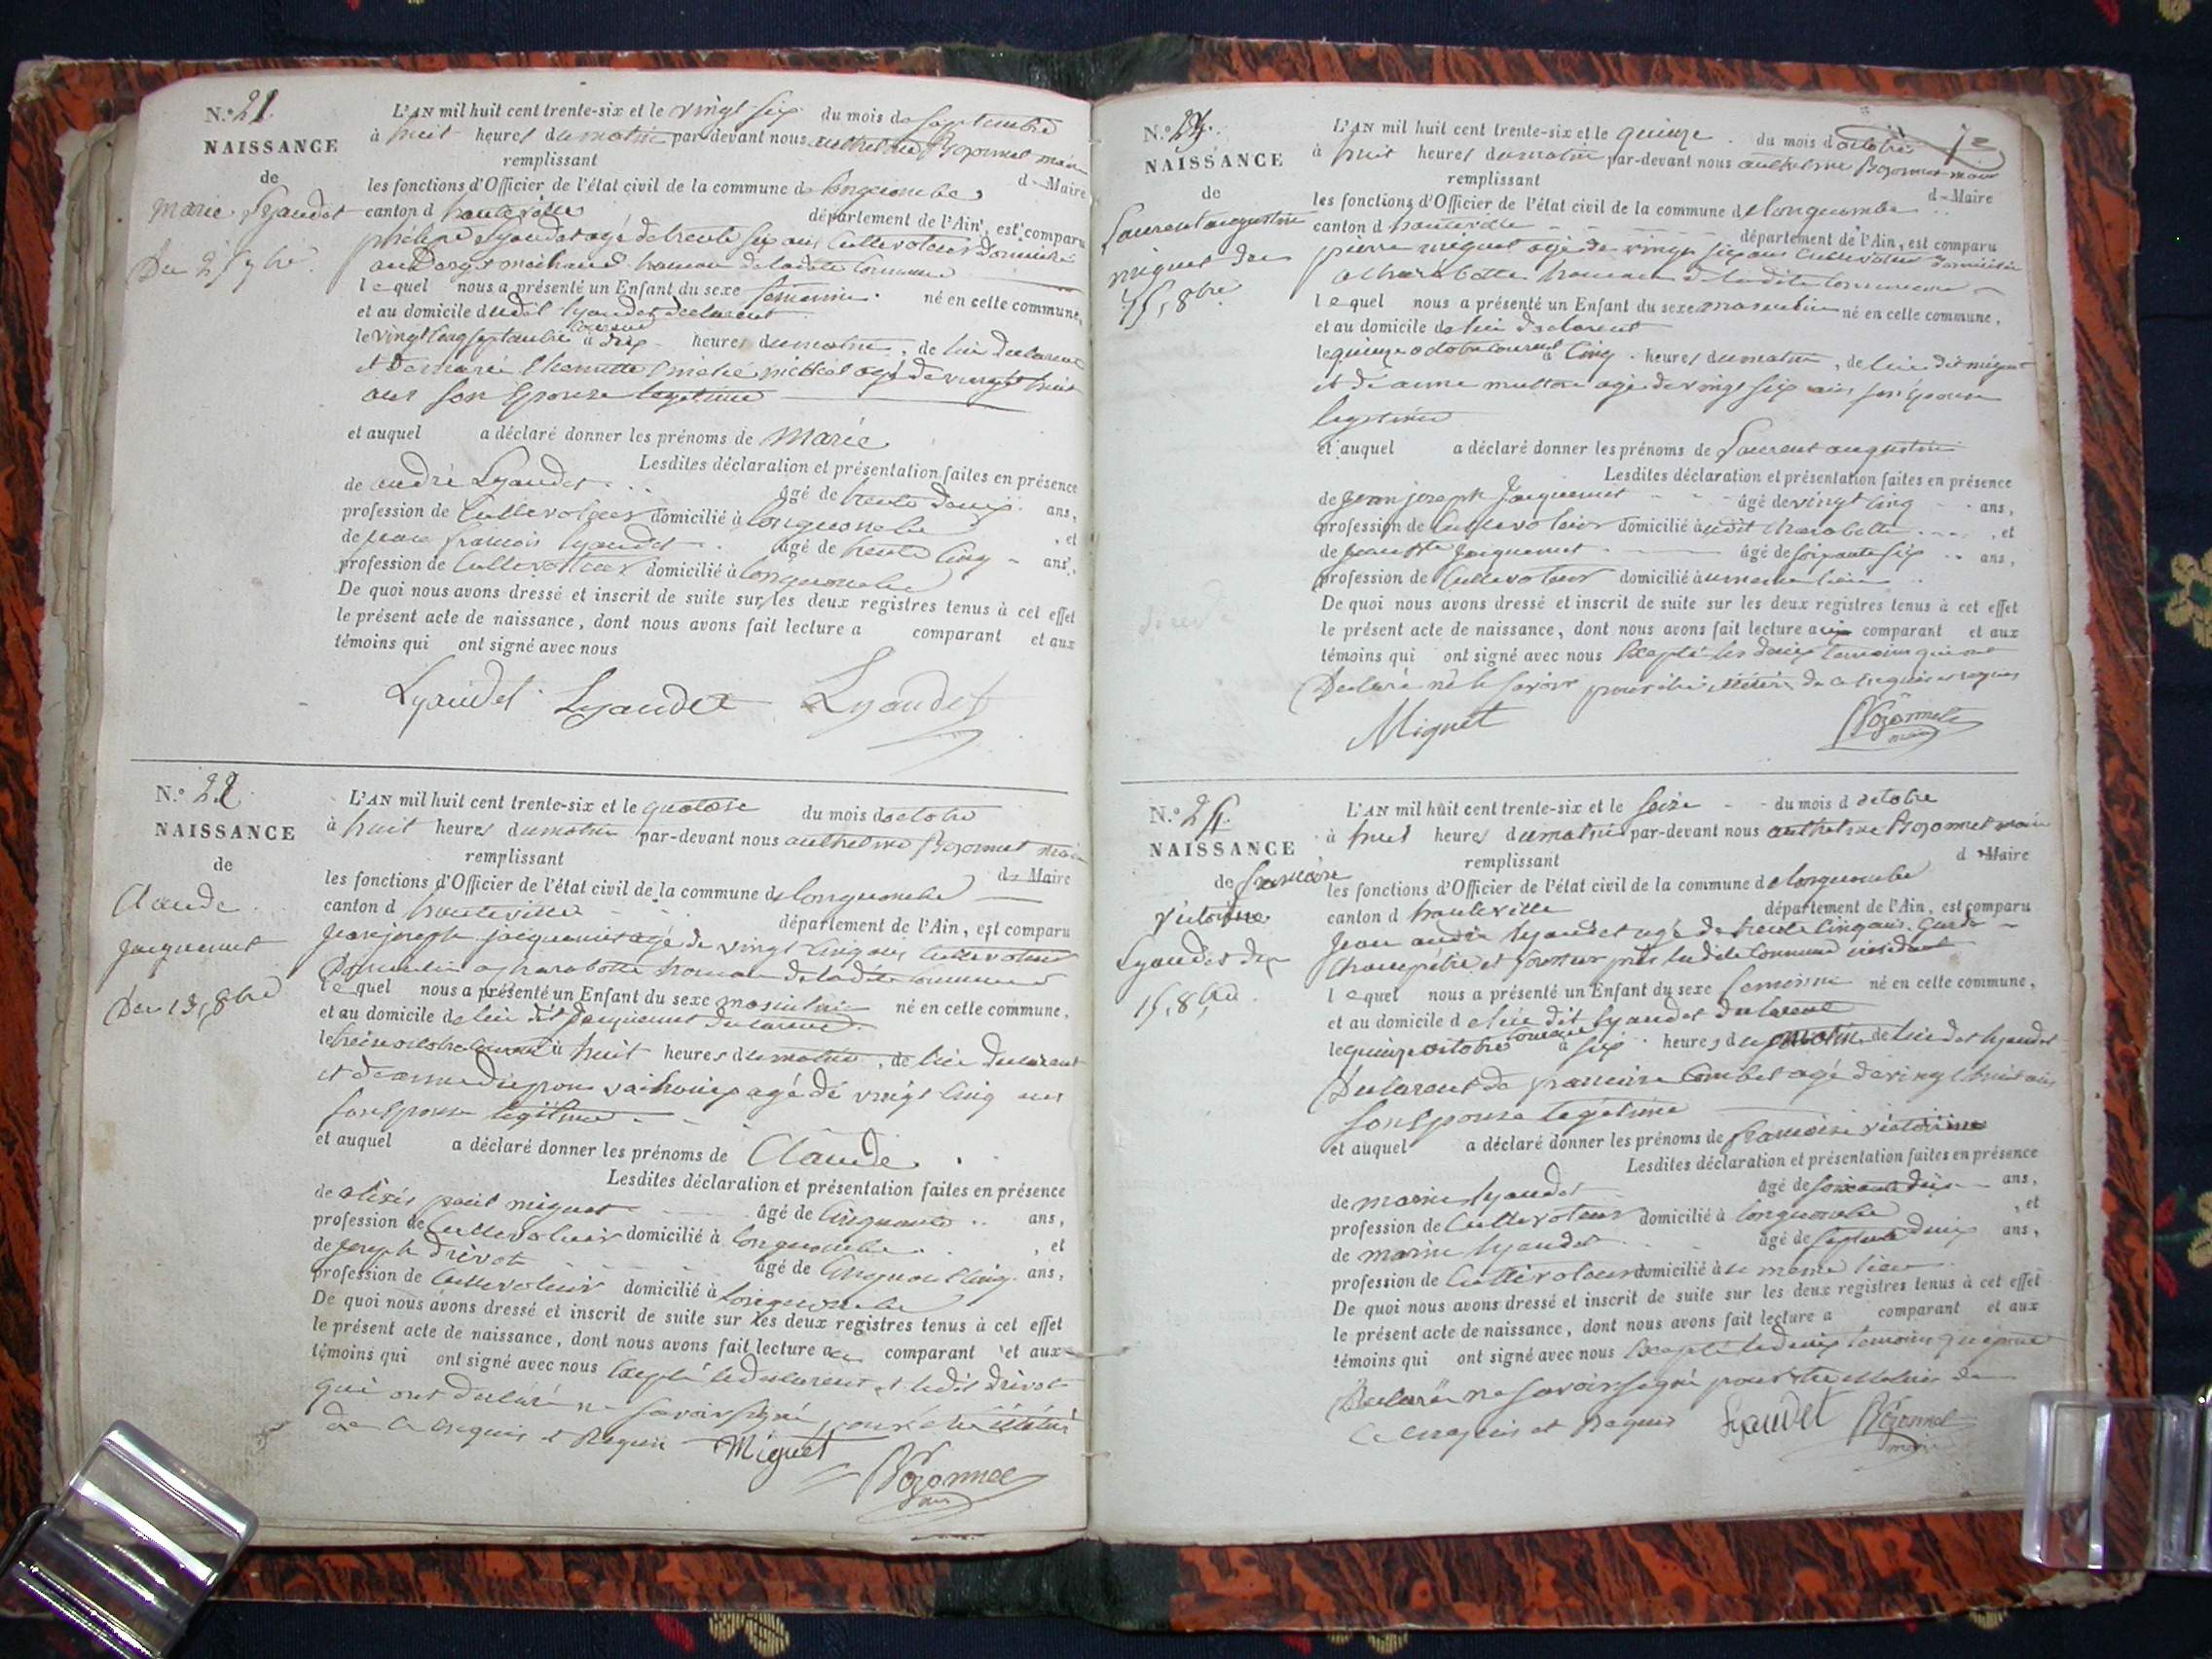 N.º 21.
NAISSANCE
de
Marie Lyaudet
Du 25 7bre
L'AN mil huit cent trente-six et le vingt six du mois de septembre
à huit heures du matin par-devant nous anthelme Bozonnet maire
remplissant d Maire
les fonctions d'Officier de l'état civil de la commune de longecombe
canton d hauteville département de l'Ain, est comparu
lyaudet agé de trente six ans Cultivateur domicilié
hameau de la dite Commune
lequel nous a présenté un Enfant du sexe feminin né en cette commune,
et au domicile dudit lyaudet declarent
le vingt cinq septembre courant à dix heures du matin, de lui declarent
et de marie agé de vingt huit
ans son Epouse legitime
et auquel a déclaré donner les prénoms de marie
Lesdites déclaration et présentation faites en présence
de andré Lyaudet âgé de trente deux ans,
profession de Cultivateur domicilié à longecombe, et
de jean francois lyaudet âgé de trente cinq ans,
profession de Cultivateur domicilié à longecombe
De quoi nous avons dressé et inscrit de suite sur les deux registres tenus à cet effet
le présent acte de naissance, dont nous avons fait lecture a comparant et aux
témoins qui ont signé avec nous
Lyaudet Lyaudet Lyaudet
N.º 22
NAISSANCE
de
Claude
Jacquemet
Du 13, 8bre
L'AN mil huit cent trente-six et le quatorze du mois doctobre
à huit heures du matin par-devant nous anthelme Bozonnet maire
remplissant d Maire
les fonctions d'Officier de l'état civil de la commune de longecombe
canton d hauteville département de l'Ain, est comparu
Jean joseph jacquemet agé de vingt cinq ans Cultivateur
Domicilié a charabotte hameau de la dite commune
lequel nous a présenté un Enfant du sexe masculin né en cette commune,
et au domicile de lui dit Jacquemet declarent
le treize octobre courant à huit heures du matin, de lui declarent
et de anne agé de vingt cinq ans
son Epouse legitime
et auquel a déclaré donner les prénoms de Claude
Lesdites déclaration et présentation faites en présence
de alexis miguet âgé de Cinquante ans,
profession de Cultivateur domicilié à longecombe, et
de joseph drivot âgé de Cinquante Cinq ans,
profession de Cultivateur domicilié à longecombe
De quoi nous avons dressé et inscrit de suite sur les deux registres tenus à cet effet
le présent acte de naissance, dont nous avons fait lecture au comparant et aux
témoins qui ont signé avec nous Excepté le declarent et ledit drivot
qui ont declaré ne savoir signé pour
de ce enquis et Requis Miguet
Bozonnet
maire
N.º 23.
NAISSANCE
de
Laurent augustin
miguet du
15, 8bre
L'AN mil huit cent trente-six et le quinze du mois doctobre
à huit heures du matin par-devant nous anthelme Bozonnet maire
remplissant d Maire
les fonctions d'Officier de l'état civil de la commune de longecombe
canton d hauteville département de l'Ain, est comparu
pierre miguet agé de vingt six ans Cultivateur domicilié
a charabotte hameau de la dite commune
lequel nous a présenté un Enfant du sexe masculin né en cette commune,
et au domicile de lui declarent
le quinze octobre courant à Cinq heures du matin, de lui dit miguet
et de anne agé de vingt six ans son Epouse
legitime
et auquel a déclaré donner les prénoms de Laurent augustin
Lesdites déclaration et présentation faites en présence
de jean joseph Jacquemet âgé de vingt cinq ans,
profession de Cultivateur domicilié à udit charabotte, et
de Jacquemet âgé de soixante six ans,
profession de Cultivateur domicilié à u meme lieu
De quoi nous avons dressé et inscrit de suite sur les deux registres tenus à cet effet
le présent acte de naissance, dont nous avons fait lecture aux comparant et aux
témoins qui ont signé avec nous Excepté les deux temoins qui ont
Declaré ne le savoir pour de ce enquis et requis
Miguet
Bozonnet
maire
N.º 24.
NAISSANCE
de francoise
victorine
Lyaudet du
15, 8bre
L'AN mil huit cent trente-six et le seize du mois d octobre
à huit heures du matin par-devant nous anthelme Bozonnet maire
remplissant d Maire
les fonctions d'Officier de l'état civil de la commune de longecombe
canton d hauteville département de l'Ain, est comparu
Jean andré lyaudet agé de trente Cinq ans. Garde
Champêtre et la dite Commune residant
lequel nous a présenté un Enfant du sexe feminin né en cette commune,
et au domicile d e lui dit lyaudet declarent
le quinze octobre courant à six heures du matin, de lui dit lyaudet
Declarent de francoise Combet agé de vingt huit ans
son Epouse legitime
et auquel a déclaré donner les prénoms de francoise victorine
Lesdites déclaration et présentation faites en présence
de marin lyaudet âgé de soixante dix ans,
profession de Cultivateur domicilié à longecombe, et
de marin lyaudet âgé de septante deux ans,
profession de Cultivateur domicilié à u meme lieu
De quoi nous avons dressé et inscrit de suite sur les deux registres tenus à cet effet
le présent acte de naissance, dont nous avons fait lecture a comparant et aux
témoins qui ont signé avec nous Excepté le deux temoins
Declaré ne savoir signé pour de
Ce enquis et Requis Lyaudet Bozonnet
maire